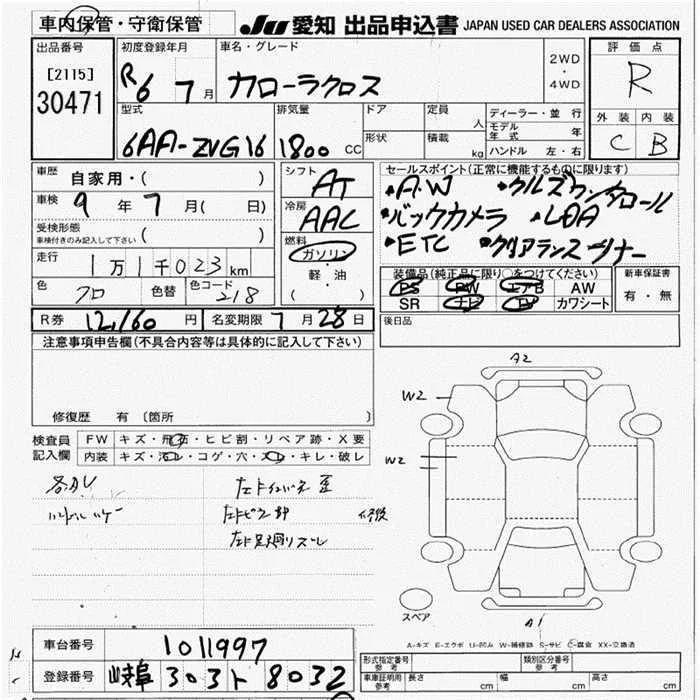 車内保管・守衛保管
JU 愛知 出品申込書 JAPAN USED CAR DEALERS ASSOCIATION
出品番号
[2115]
30471
初度登録年月
R6 7月
車名・グレード
カローラクロス
2WD
・
4WD
評価点
R
外装 内装
C B
型式
6AA-ZVG16
排気量
1800 CC
ドア
形状
定員
人
積載
kg
ディーラー・並行
モデル年式 年
ハンドル 左・右
車歴 自家用・( )
車検 9年7月( 日)
受検形態
車検付きのみ記入して下さい ( )
走行 1万1千023km
色 クロ 色替 色コード 218
シフト
AT
冷房
AAC
燃料
ガソリン
・
軽・油
( )
セールスポイント(正常に機能するものに限ります)
・A.W ・クルズコントロール
・バックカメラ ・LDA
・ETC ・クリアランスソナー
装備品(純正品に限り○をつけてください)
PS PW エアB AW
SR ナビ TV カワシート
新車保証書
有・無
R券 12,160円 名変期限 7月28日
後日品
注意事項申告欄(不具合内容等は具体的に記入して下さい)
修復歴 有 〔箇所 〕
検査員記入欄
FW キズ・飛石・ヒビ割・リペア跡・X要
内装 キズ・汚レ・コゲ・穴・スレ・キレ・破レ
各カレ
ハンドル ハゲー
修復
A2
W2
W2
スペア
A1
A-キズ E-エクボ U-凹み W-補修跡 S-サビ C-腐食 XX-交換済
車台番号 1011997
登録番号 岐阜 303 ト 8032
形式指定番号
参考
類別区分番号
参考
車庫証明用
参考
長さ cm 幅 cm 高さ cm